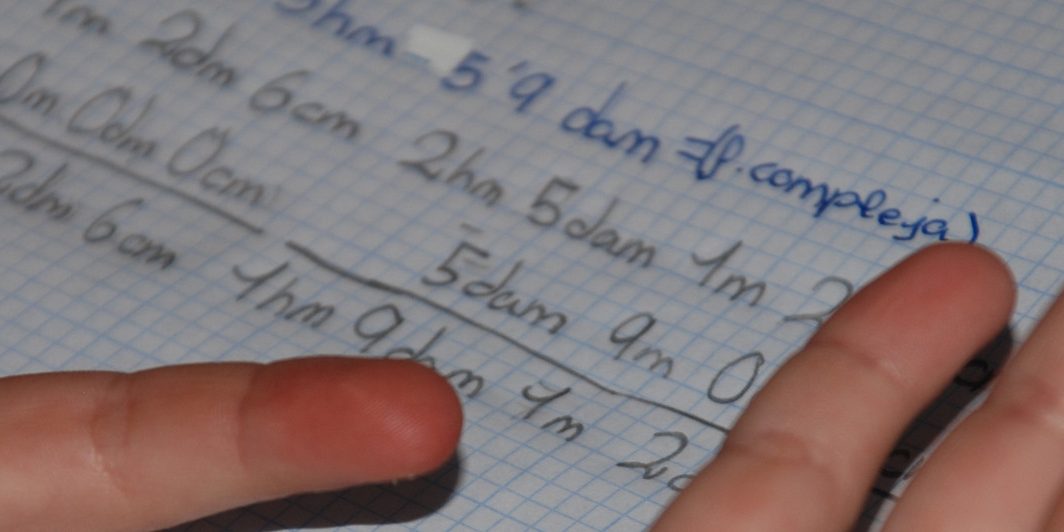 hm 5'9 dam =(f. compleja)
1m 2dm 6cm 2hm 5dam 1m 2
0m 0dm 0cm - 5dam 9m 0
2dm 6cm 1hm 9dam 1m 2